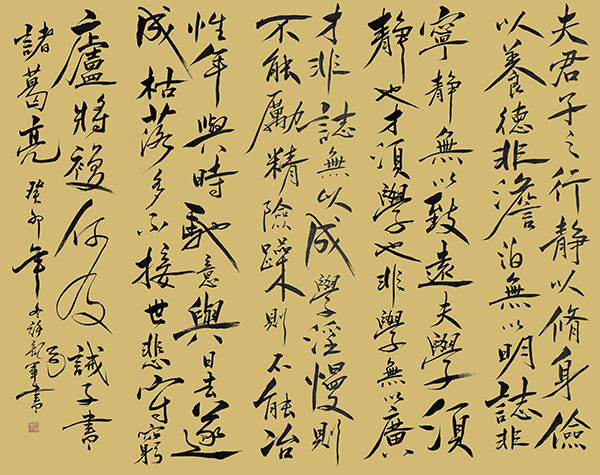 夫君子之行靜以脩身儉
以養德非澹泊無以明誌非
寧靜無以致遠夫學須
靜也才須學也非學無以廣
才非誌無以成學淫慢則
不能勵精險躁則不能冶
性年與時馳意與日去遂
成枯落多不接世悲守窮
廬將複何及 誡子書
諸葛亮 癸卯年冬許軍書